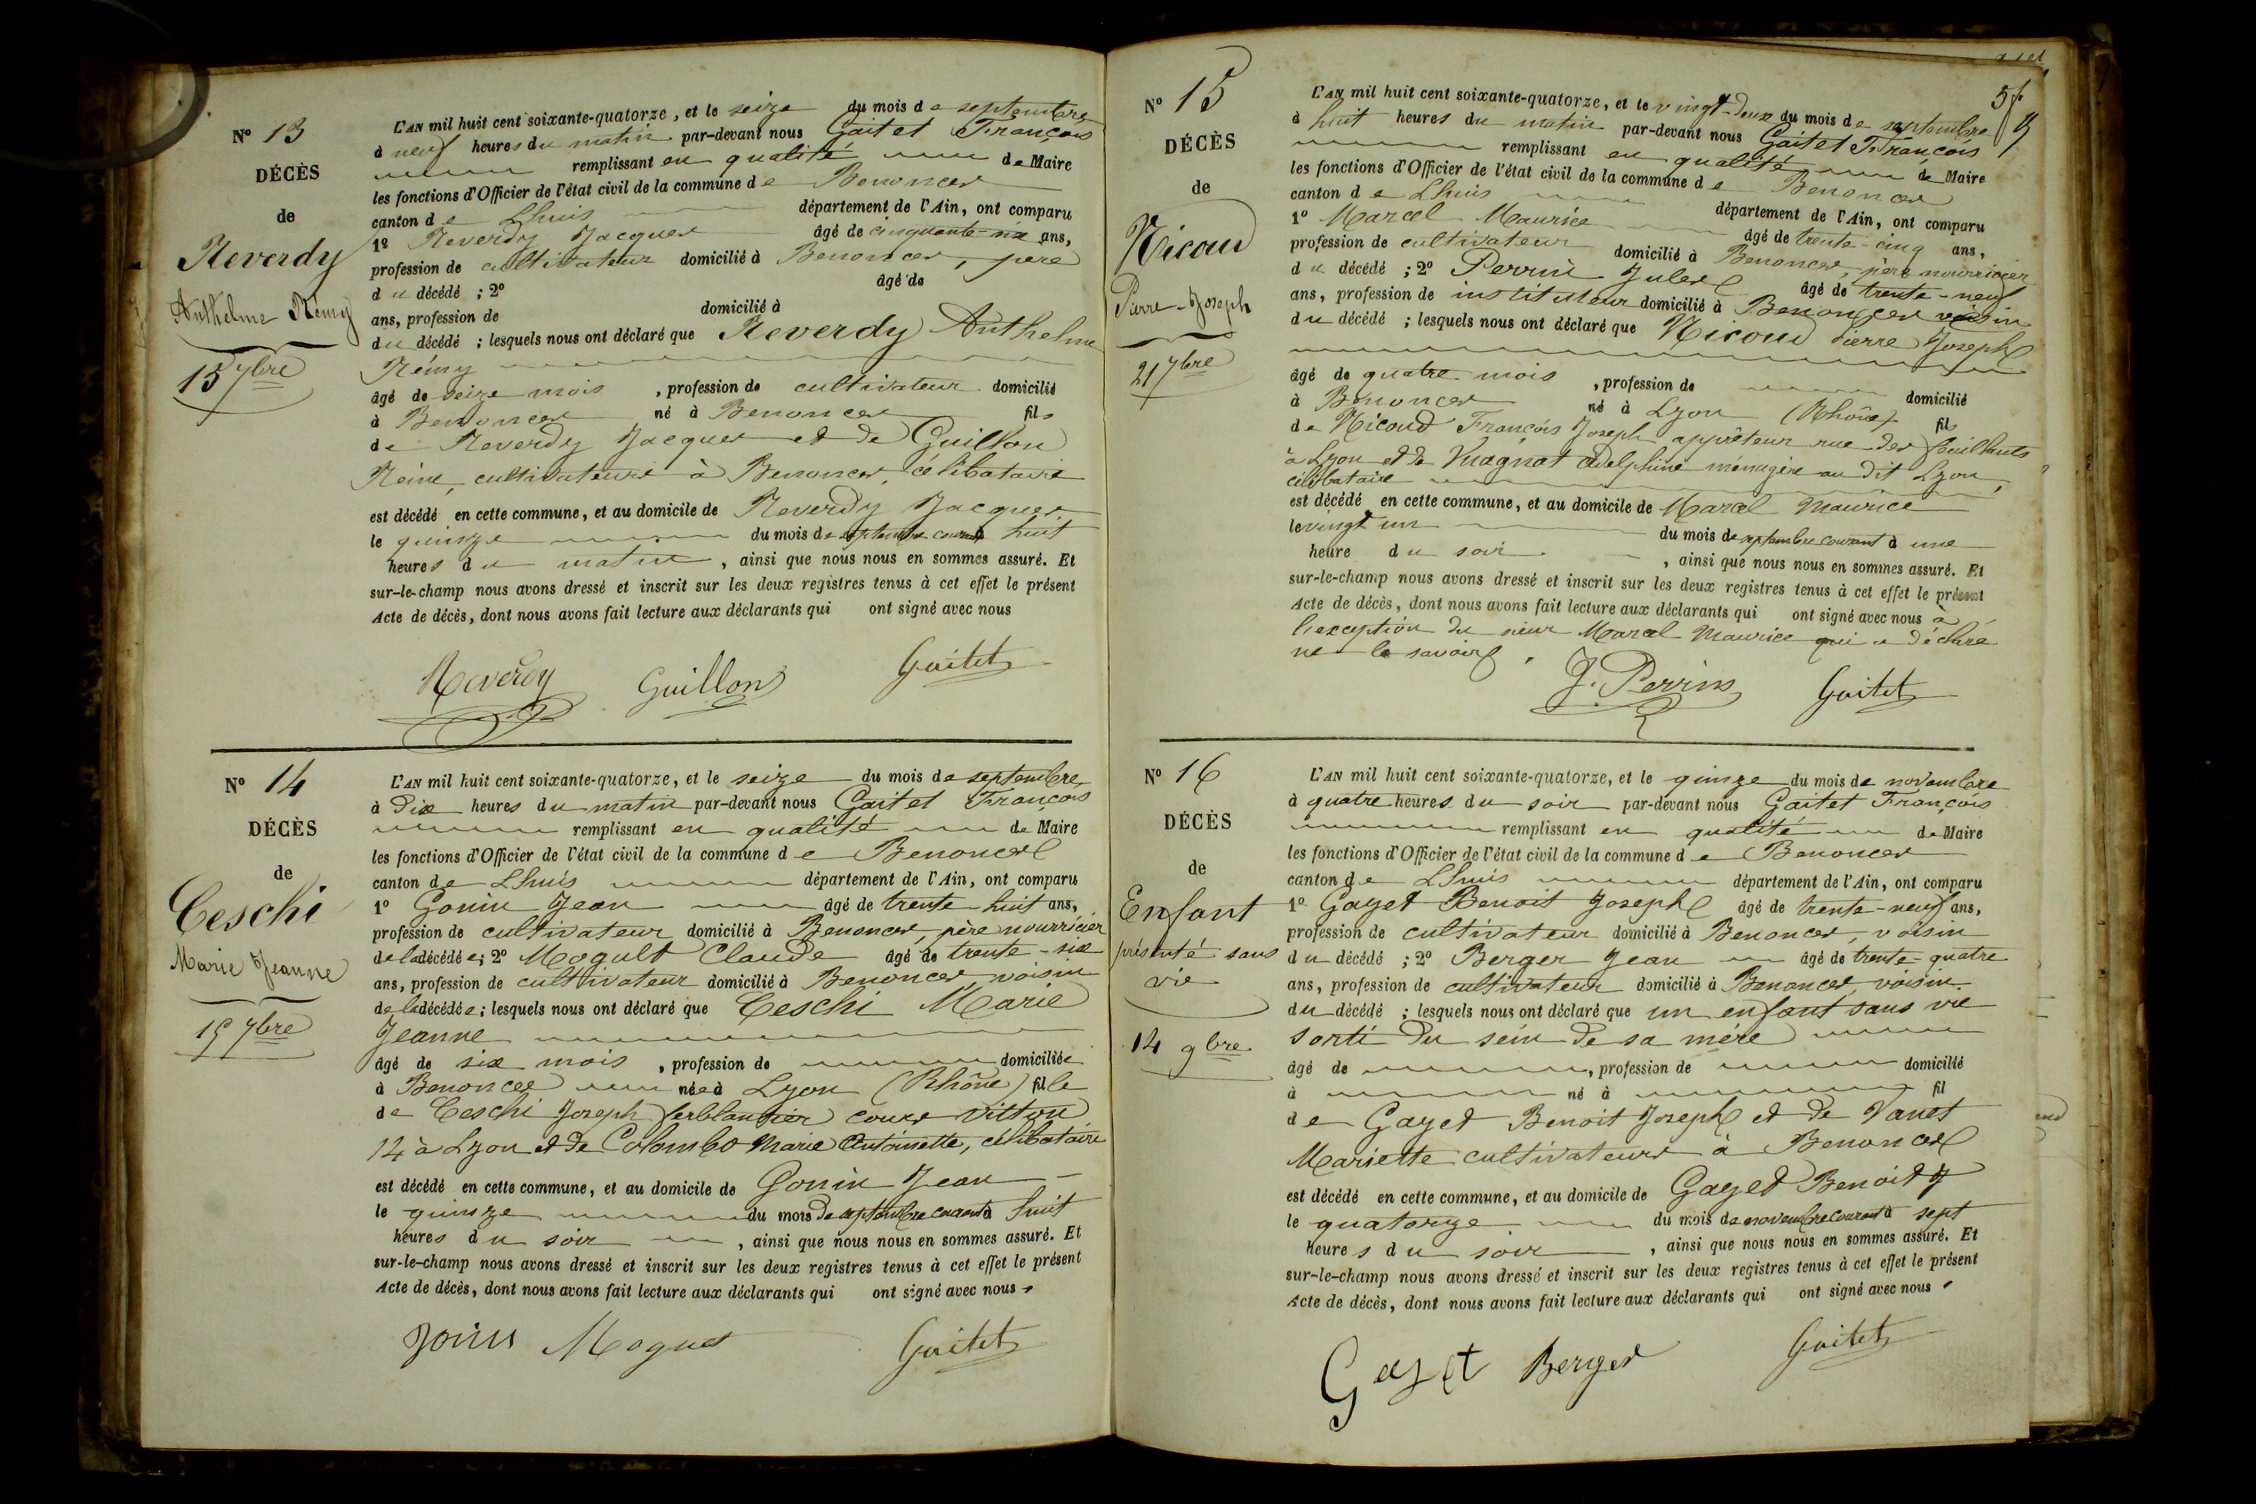 N° 13
DÉCÈS
de
Reverdy
Anthelme Rémy
15 7bre
L'AN mil huit cent soixante-quatorze, et le seize du mois de septembre
à neuf heures du matin par-devant nous Gaitet François
remplissant en qualité de Maire
les fonctions d'Officier de l'état civil de la commune de Benonces
canton de Lhuis département de l'Ain, ont comparu
1° Reverdy Jacques âgé de cinquante-six ans,
profession de cultivateur domicilié à Benonces, père
du décédé ; 2° âgé de
ans, profession de domicilié à
du décédé ; lesquels nous ont déclaré que Reverdy Anthelme
Rémy
âgé de seize mois , profession de cultivateur domicilié
à Benonces né à Benonces fils
de Reverdy Jacques et de Guillon
Reine, cultivateurs à Benonces, célibataire
est décédé en cette commune, et au domicile de Reverdy Jacques
le quinze du mois de septembre courant à huit
heures du matin , ainsi que nous nous en sommes assuré. Et
sur-le-champ nous avons dressé et inscrit sur les deux registres tenus à cet effet le présent
Acte de décès, dont nous avons fait lecture aux déclarants qui ont signé avec nous
Reverdy Guillon Gaitet
N° 14
DÉCÈS
de
Ceschi
Marie Jeanne
15 7bre
L'AN mil huit cent soixante-quatorze, et le seize du mois de septembre
à dix heures du matin par-devant nous Gaitet François
remplissant en qualité de Maire
les fonctions d'Officier de l'état civil de la commune de Benonces
canton de Lhuis département de l'Ain, ont comparu
1° Gonin Jean âgé de trente-huit ans,
profession de cultivateur domicilié à Benonces, père nourricier
de la décédée; 2° Mogult Claude âgé de trente-six
ans, profession de cultivateur domicilié à Benonces, voisin
de la décédée; lesquels nous ont déclaré que Ceschi Marie
Jeanne
âgé de six mois , profession de domiciliée
à Benonces née à Lyon (Rhône) fille
de Ceschi Joseph ferblantier cours Vitton
14 à Lyon et de Colombo Marie Antoinette, célibataire
est décédé en cette commune, et au domicile de Gonin Jean
le quinze du mois de septembre courant à huit
heures du soir , ainsi que nous nous en sommes assuré. Et
sur-le-champ nous avons dressé et inscrit sur les deux registres tenus à cet effet le présent
Acte de décès, dont nous avons fait lecture aux déclarants qui ont signé avec nous.
Moguet Gaitet
N° 15
DÉCÈS
de
Nicoud
Pierre-Joseph
21 7bre
L'AN mil huit cent soixante-quatorze, et le vingt-deux du mois de septembre
à huit heures du matin par-devant nous Gaitet François
remplissant en qualité de Maire
les fonctions d'Officier de l'état civil de la commune de Benonces
canton de Lhuis département de l'Ain, ont comparu
1° Marcel Maurice âgé de trente-cinq ans,
profession de cultivateur domicilié à Benonces, père nourricier
du décédé ; 2° Perrin Jules âgé de trente-neuf
ans, profession de instituteur domicilié à Benonces voisin
du décédé ; lesquels nous ont déclaré que Nicoud Pierre Joseph
âgé de quatre mois , profession de domicilié
à Benonces né à Lyon (Rhône) fils
de Nicoud François Joseph apprêteur rue des Feuillants
à Lyon et de Vuagnat Adelphine ménagère au dit Lyon,
célibataire
est décédé en cette commune, et au domicile de Marcel Maurice
le vingt un du mois de septembre courant à une
heure du soir , ainsi que nous nous en sommes assuré. Et
sur-le-champ nous avons dressé et inscrit sur les deux registres tenus à cet effet le présent
Acte de décès, dont nous avons fait lecture aux déclarants qui ont signé avec nous à
l'exception du sieur Marcel Maurice qui a déclaré
ne le savoir.
J. Perrin Gaitet
N° 16
DÉCÈS
de
Enfant
présenté sans
vie
14 9bre
L'AN mil huit cent soixante-quatorze, et le quinze du mois de novembre
à quatre heures du soir par-devant nous Gaitet François
remplissant en qualité de Maire
les fonctions d'Officier de l'état civil de la commune de Benonces
canton de Lhuis département de l'Ain, ont comparu
1° Gayet Benoit Joseph âgé de trente-neuf ans,
profession de cultivateur domicilié à Benonces, voisin
du décédé ; 2° Berger Jean âgé de trente-quatre
ans, profession de cultivateur domicilié à Benonces, voisin
du décédé ; lesquels nous ont déclaré que un enfant sans vie
sorti du sein de sa mère
âgé de , profession de domicilié
à né à fil
de Gayet Benoit Joseph et de Vanet
Mariette cultivateurs à Benonces
est décédé en cette commune, et au domicile de Gayet Benoit J
le quatorze du mois de novembre courant à sept
heures du soir , ainsi que nous nous en sommes assuré. Et
sur-le-champ nous avons dressé et inscrit sur les deux registres tenus à cet effet le présent
Acte de décès, dont nous avons fait lecture aux déclarants qui ont signé avec nous.
Gayet Berger Gaitet